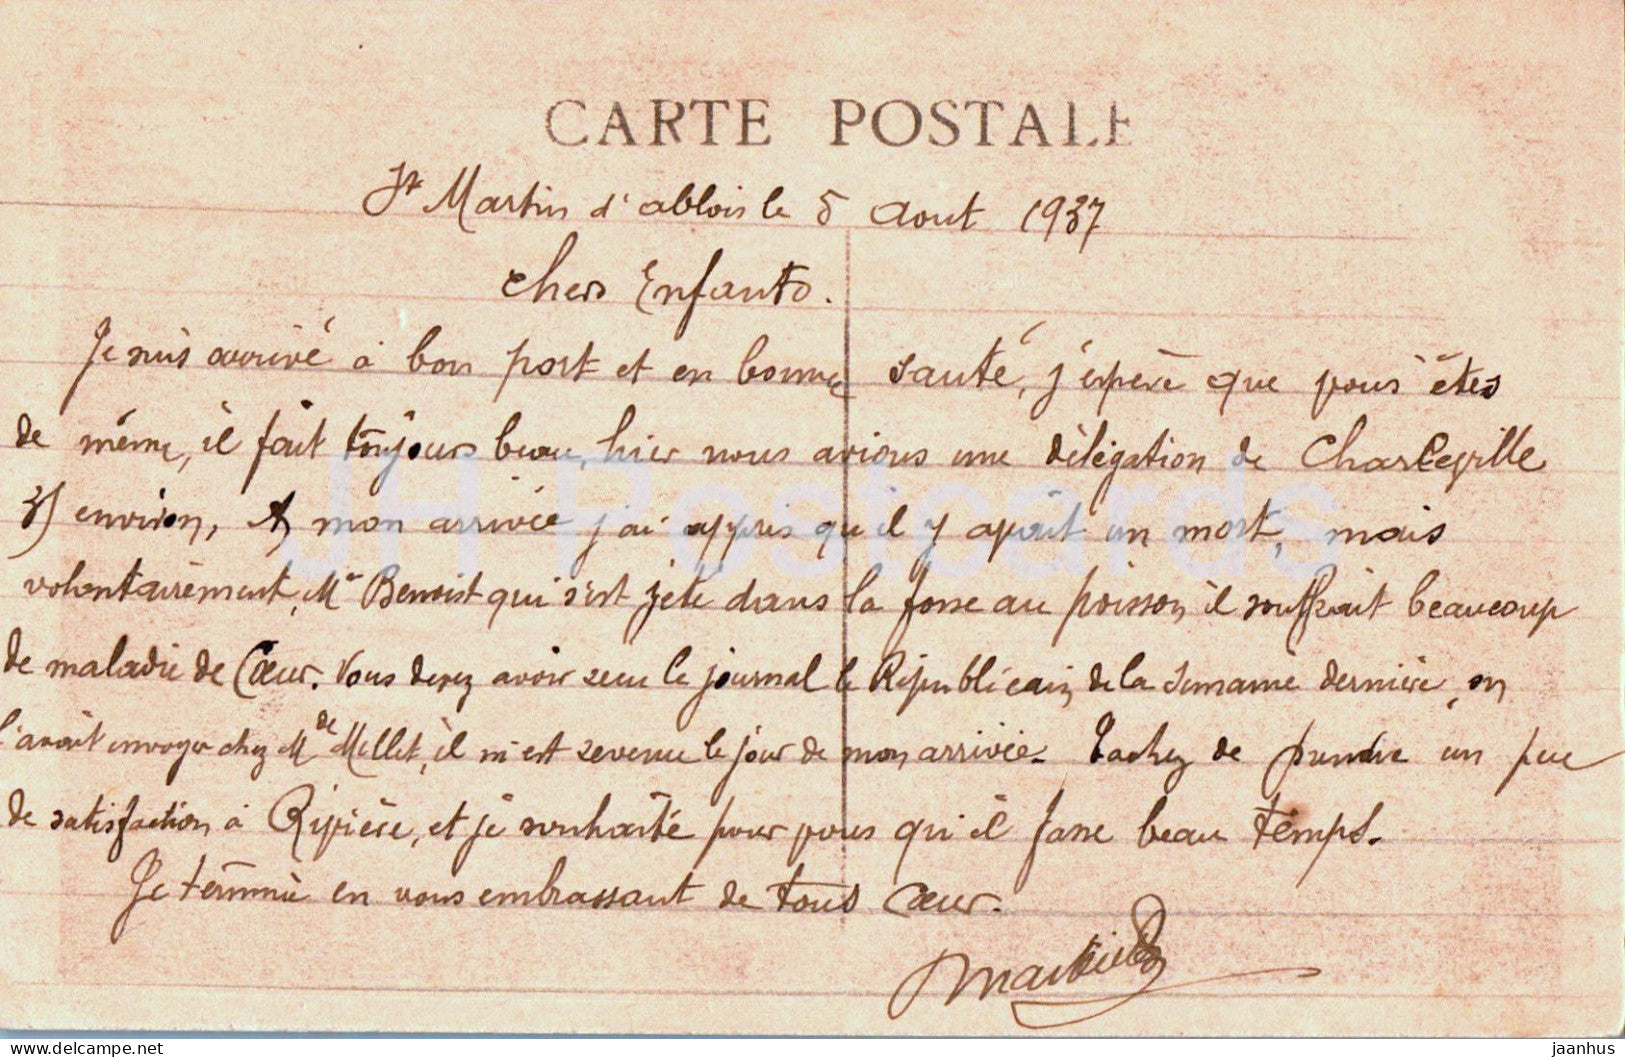 CARTE POSTALE
St Martin d'ablois le 5 Aout 1937
Chers Enfants.
Je suis arrivé à bon port et en bonne santé, j'éspère que vous êtes
de même, il fait toujours beau, hier nous avions une délégation de Charleville
environ, A mon arrivée j'ai appris qu'il y avait un mort, mais
volontairement, Mr Benoist qui s'est jeté dans la fosse au poisson, il souffrait beaucoup
de maladie de Cœur. Vous devez avoir reçu le journal le Républicain, de la Semaine dernière, on
l'avait envoyer chez Mde Millet, il m'est revenue le jour de mon arrivée. Tachez de prendre un peu
de satisfaction à Rivière, et je souhaite pour vous qu'il fasse beau temps.
Je termine en vous embrassant de tous Cœur.
JH Postcards
jaanhus
https://www.delcampe.net